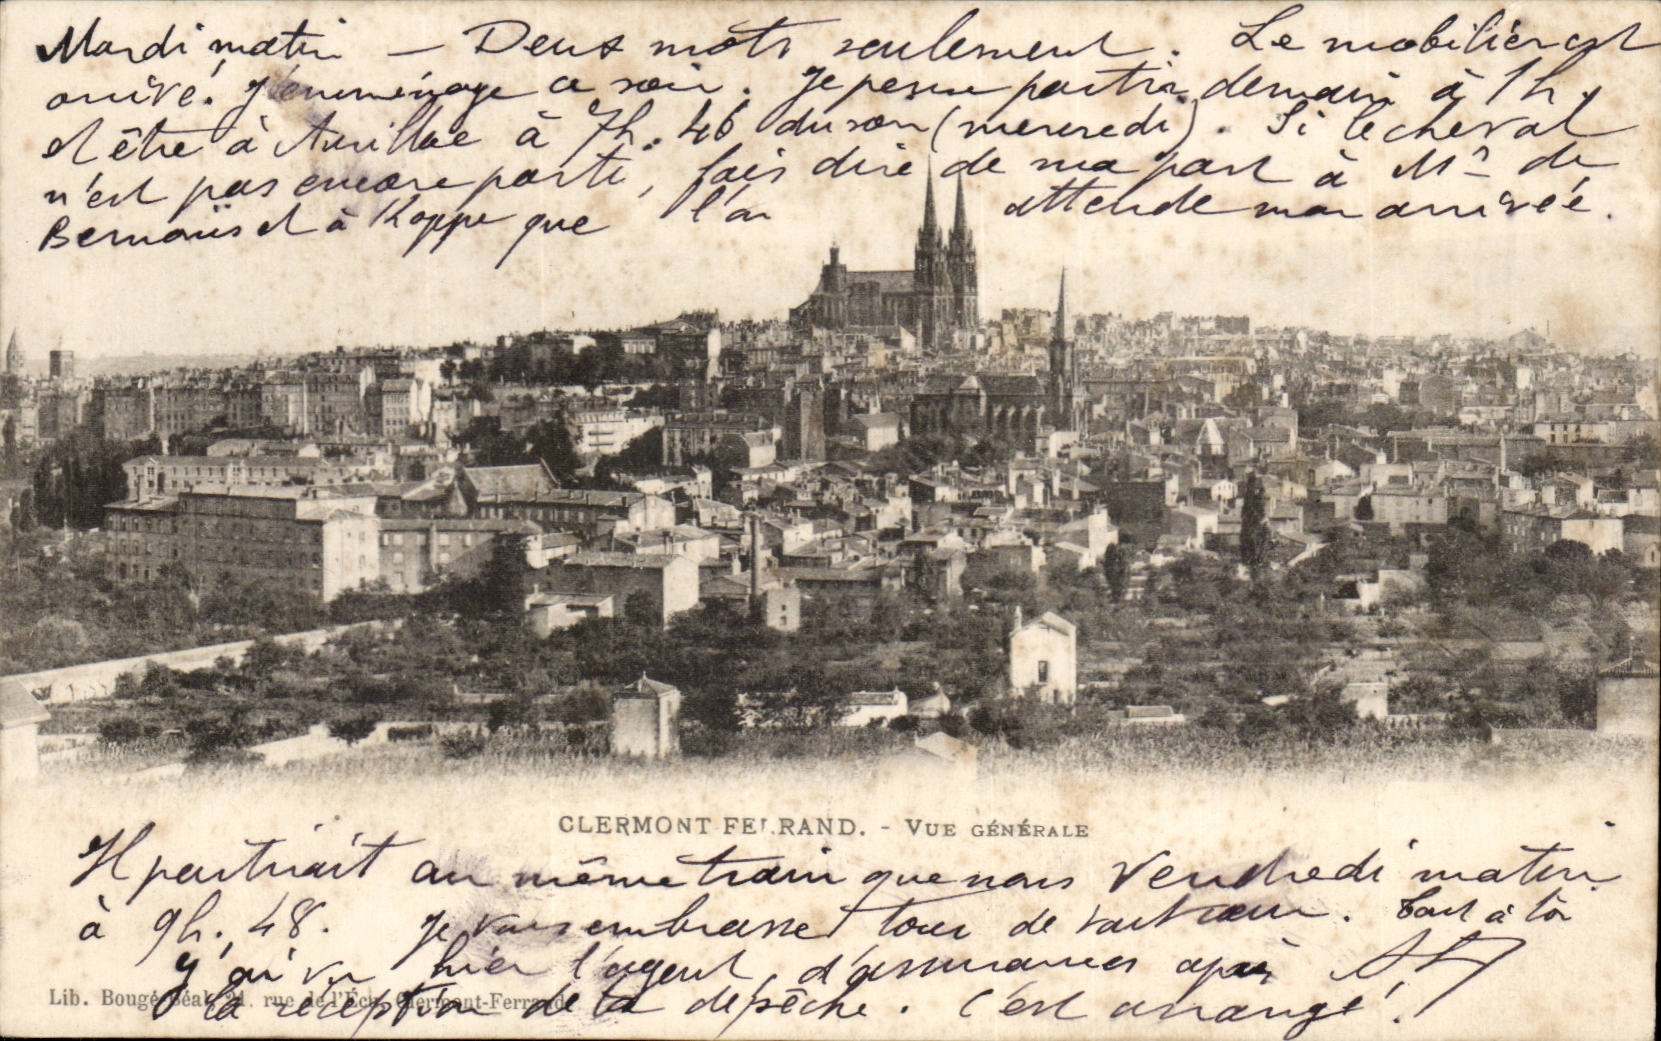 Mardi matin — Deux mots seulement. Le mobilier est
arrivé. J'emménage ce soir. Je pense partir demain à 1h,
et être à Aurillac à 7h. 46 du soir (mercredi). Si le cheval
n'est pas encore parti, fais dire de ma part à Mr de
et à Koppe que l'on attende mon arrivée.
CLERMONT-FERRAND. - VUE GÉNÉRALE
Il partirait au même train que nous Vendredi matin
à 9h. 48. Je vous embrasse tous de tout cœur. Tout à toi
J'ai vu hier l'agent d'assurances après
la réception de la dépêche. C'est arrangé!
Lib. Bougé-Béal, 21, rue de l'Écu, Clermont-Ferrand